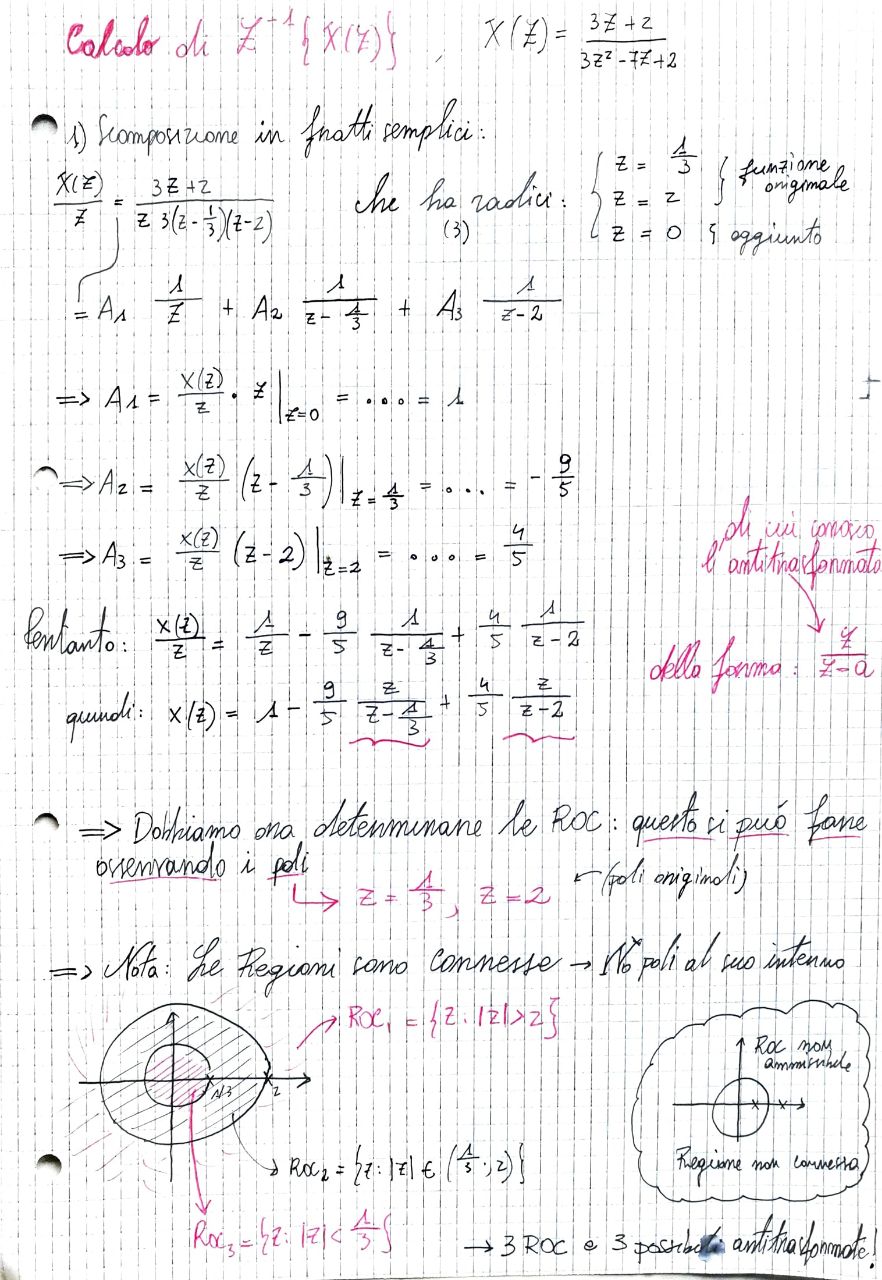 Calcolo di Z⁻¹{X(Z)} , X(Z) = (3Z+2)/(3Z²-7Z+2)
1) Scomposizione in fratti semplici:
X(Z)/Z = (3Z+2)/(Z 3(Z-1/3)(Z-2)) che ha radici: (3) { Z = 1/3
Z = 2 } funzione originale
Z = 0 } aggiunto
= A1 1/Z + A2 1/(Z-1/3) + A3 1/(Z-2)
=> A1 = X(Z)/Z · Z |Z=0 = .... = 1
=> A2 = X(Z)/Z (Z-1/3)|Z=1/3 = .... = -9/5
=> A3 = X(Z)/Z (Z-2)|Z=2 = .... = 4/5
di cui conosco
l'antitrasformata
Pertanto: X(Z)/Z = 1/Z - 9/5 1/(Z-1/3) + 4/5 1/(Z-2)
della forma: Z/(Z-a)
quindi: X(Z) = 1 - 9/5 Z/(Z-1/3) + 4/5 Z/(Z-2)
=> Dobbiamo ora determinare le ROC: questo si può fare
osservando i poli
Z = 1/3, Z = 2 ← (poli originali)
=> Nota: Le Regioni sono Connesse → No poli al suo interno
ROC₁ = {Z: |Z|>2}
1/3 2
ROC₂ = {Z: |Z| ∈ (1/3; 2)}
ROC₃ = {Z: |Z| < 1/3}
Roc non
ammissibile
Regione non connessa
→ 3 ROC e 3 possibili antitrasformate!